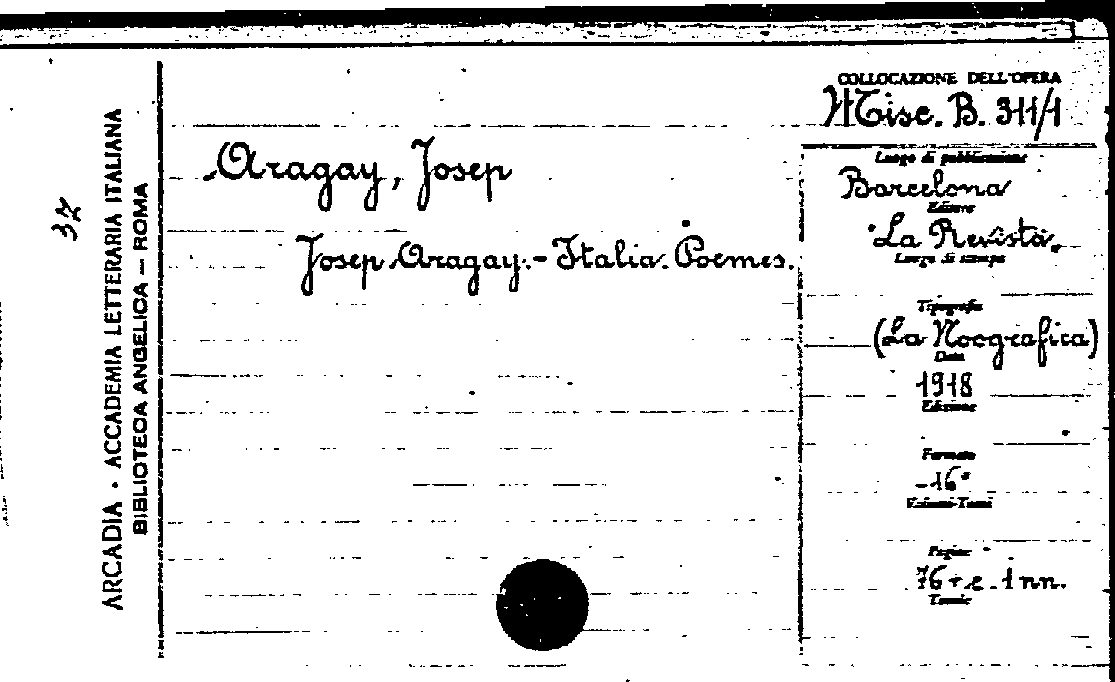 37
ARCADIA • ACCADEMIA LETTERARIA ITALIANA
BIBLIOTECA ANGELICA — ROMA
Aragay, Josep
Josep Aragay.- Italia. Poemes.
COLLOCAZIONE DELL'OPERA
Misc. B. 311/1
Luogo di pubblicazione
Barcelona
Editore
"La Revista"
Luogo di stampa
Tipografia
(La Neografica)
Data
1918
Edizione
Formato
-16°
Volumi-Tomi
Pagine
76 + e 1 nn.
Tavole